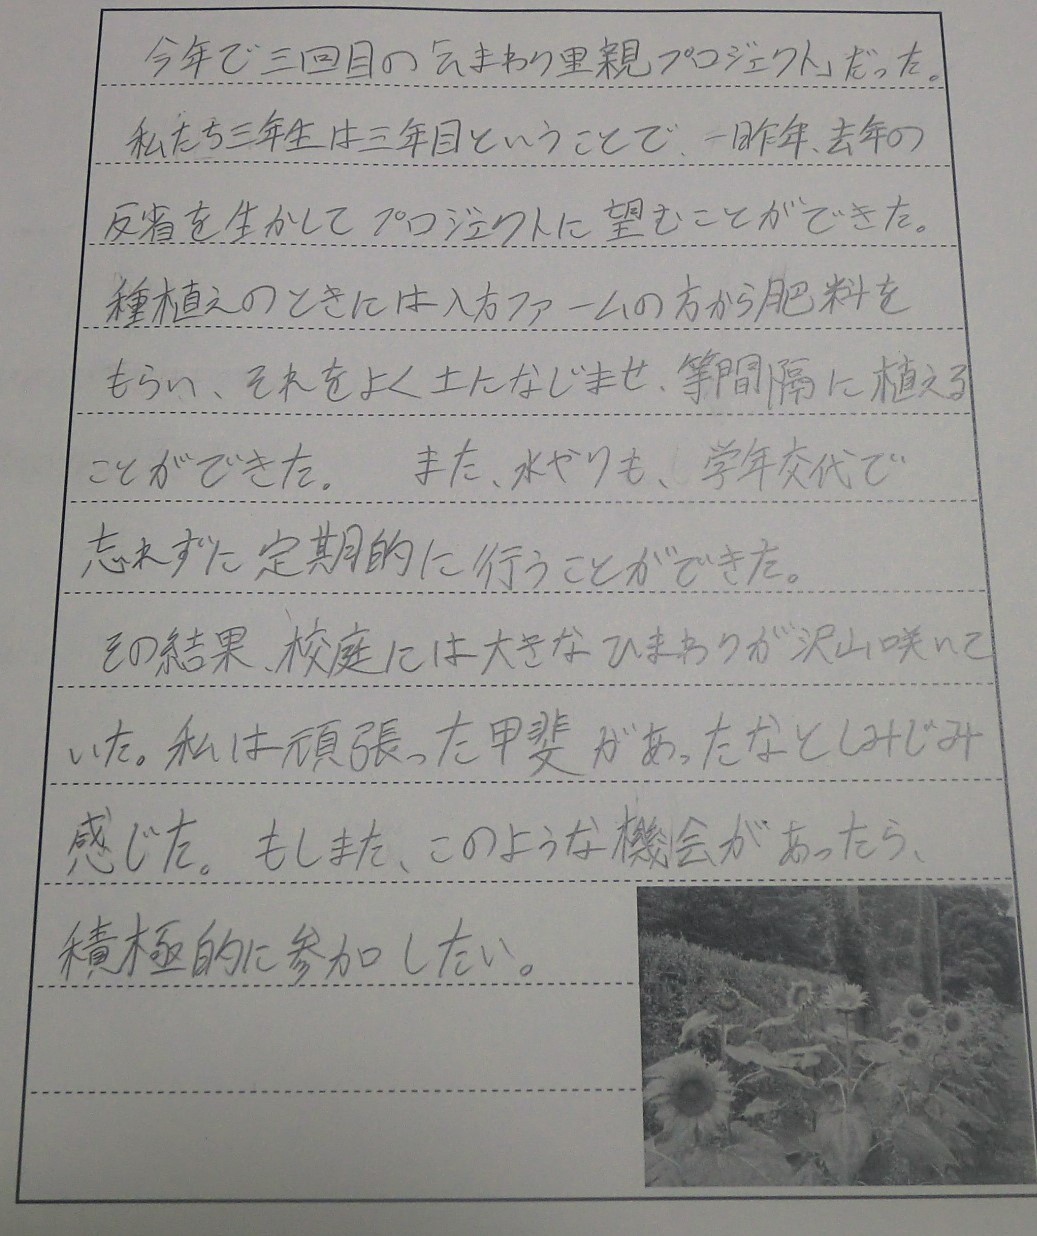 今年で三回目の「ひまわり里親プロジェクト」だった。
私たち三年生は三年目ということで、一昨年、去年の
反省を生かしてプロジェクトに望むことができた。
種植えのときには入方ファームの方から肥料を
もらい、それをよく土になじませ、等間隔に植える
ことができた。 また、水やりも、学年交代で
忘れずに定期的に行うことができた。
その結果、校庭には大きなひまわりが沢山咲いて
いた。私は頑張った甲斐があったなとしみじみ
感じた。もしまた、このような機会があったら、
積極的に参加したい。